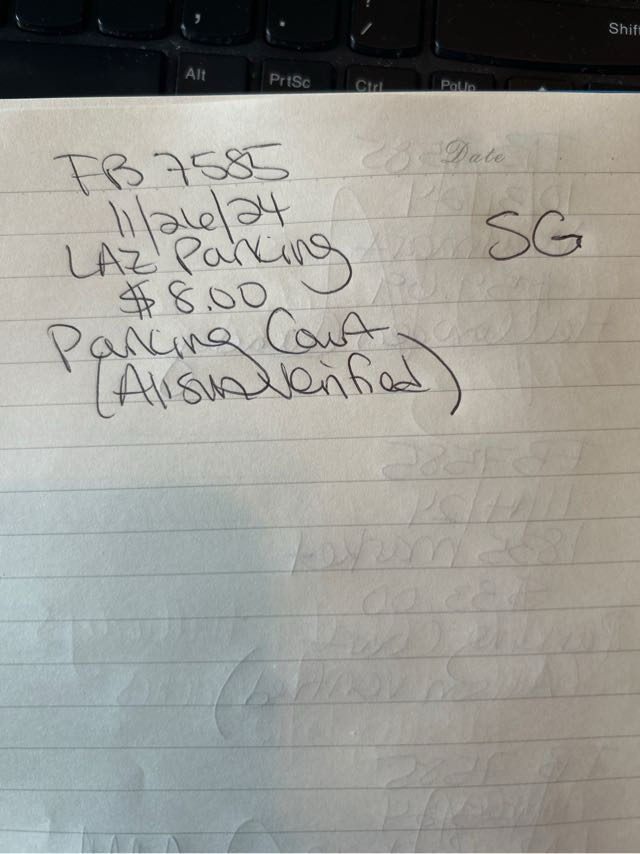 , . /
Shift
Alt PrtSc Ctrl PgUp
Date
FB 7585
11/26/24
LAZ Parking SG
$8.00
Parking Court
(Alison Verified)